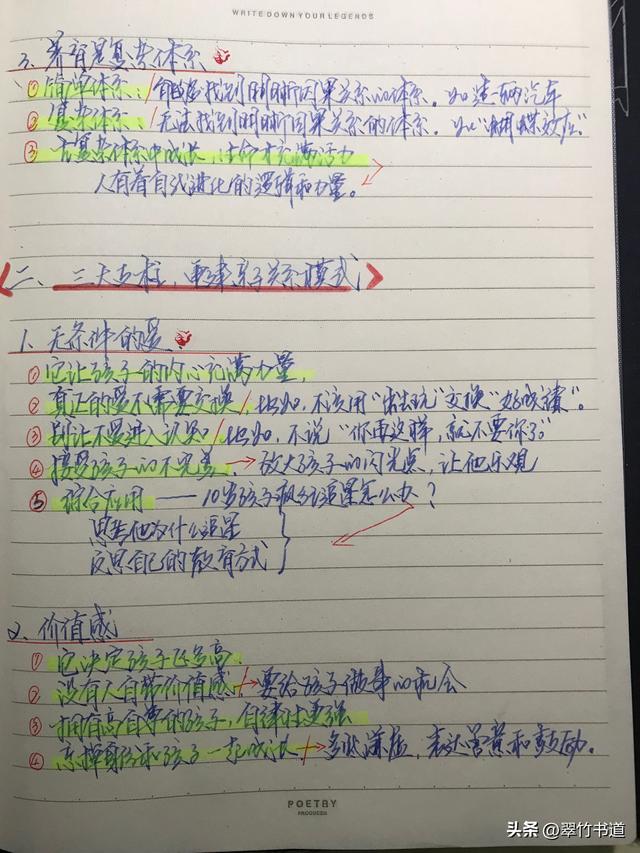 WRITE DOWN YOUR LEGENDS
3. 养育是复杂体系
① 简单体系:/能够找到明晰因果关系的体系。如造辆汽车
② 复杂体系:/无法找到明晰因果关系的体系。如"蝴蝶效应"
③ 在复杂体系中成长,生命才充满活力
人有着自我进化的逻辑和力量。
二、三大支柱,重建亲子关系模式
1. 无条件的爱
① 它让孩子的内心充满力量,
② 真正的爱不需要交换/比如,不该用"出去玩"交换"好成绩"。
③ 别让不爱进入认知/比如,不说"你再这样,就不要你了"
④ 接受孩子的不完美→放大孩子的闪光点,让他乐观
⑤ 综合应用——10岁孩子疯狂追星怎么办?
思考他为什么追星
反思自己的教育方式
2. 价值感
① 它决定孩子飞多高.
② 没有人自带价值感→要给孩子做事的机会
③ 拥有高自尊的孩子,自律性更强
④ 亲掉身份和孩子一起成长→多些谦益,表达赞赏和鼓励。
POETRY
PRODUCED
头条 @翠竹书道